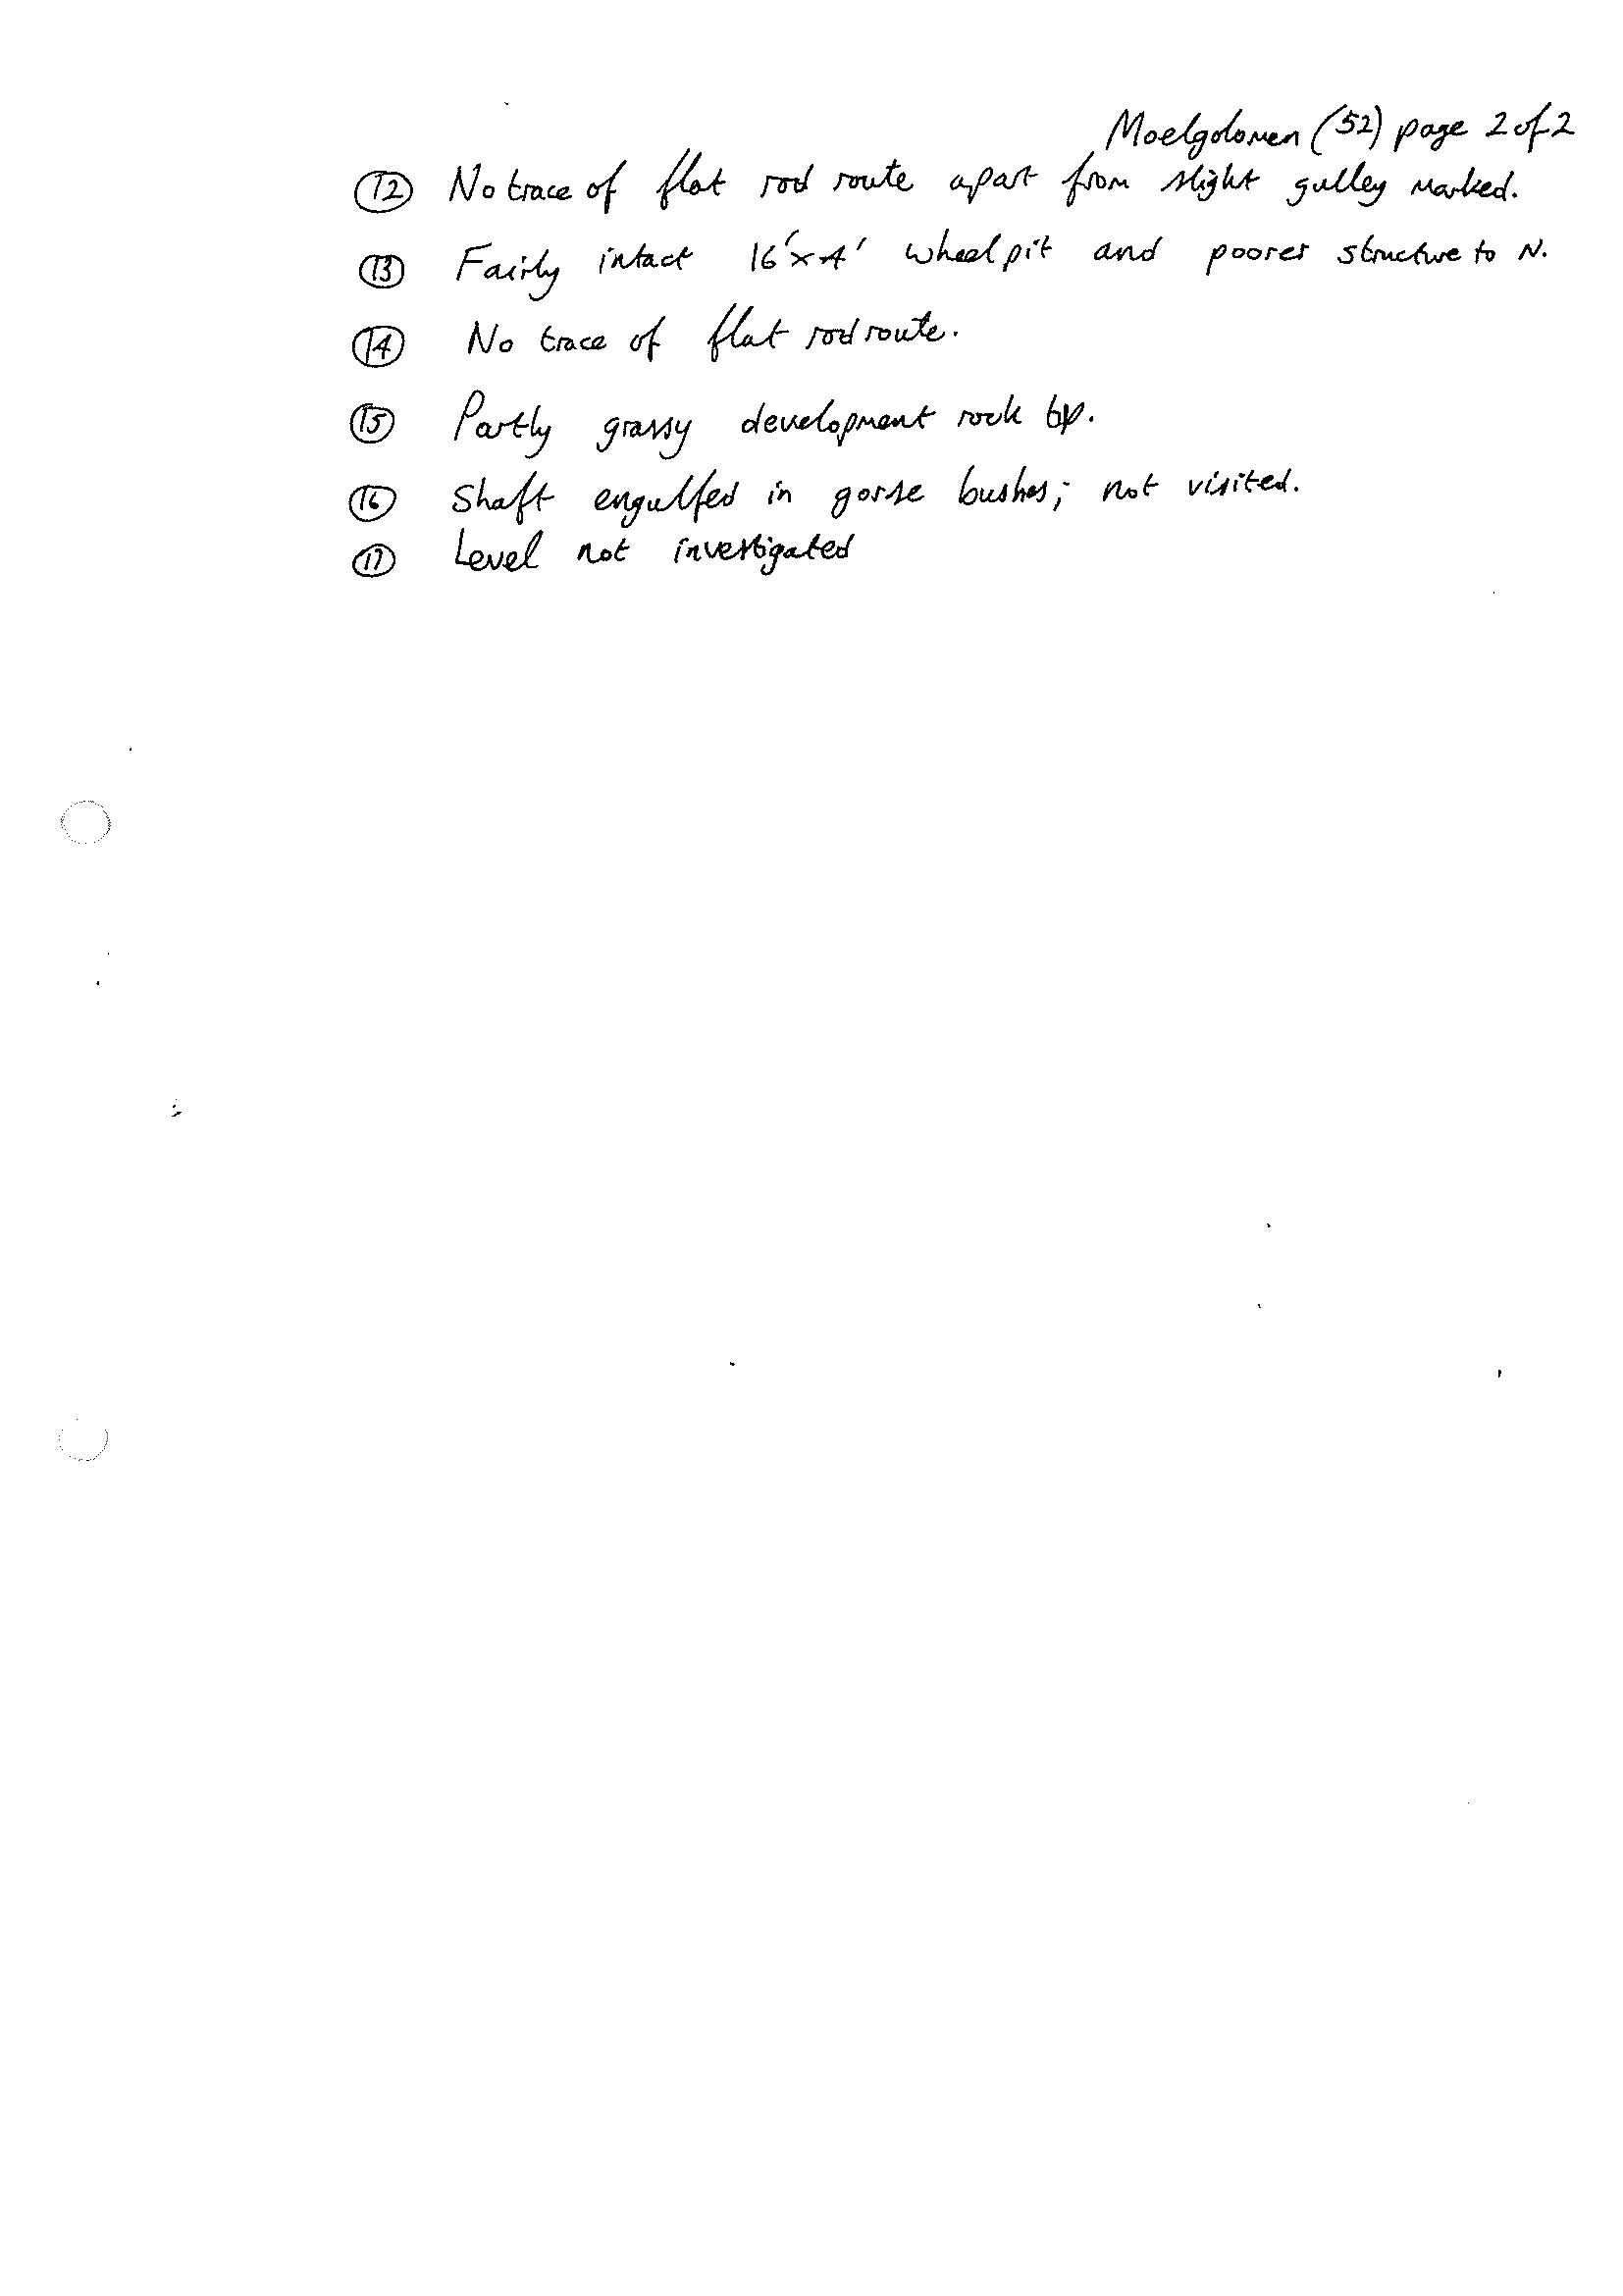 Moelgolomen (52) page 2 of 2
12 No trace of flat rod route apart from slight gulley marked.
13 Fairly intact 16'x4' wheelpit and poorer structure to N.
14 No trace of flat rod route.
15 Partly grassy development rock tip.
16 Shaft engulfed in gorse bushes; not visited.
17 Level not investigated